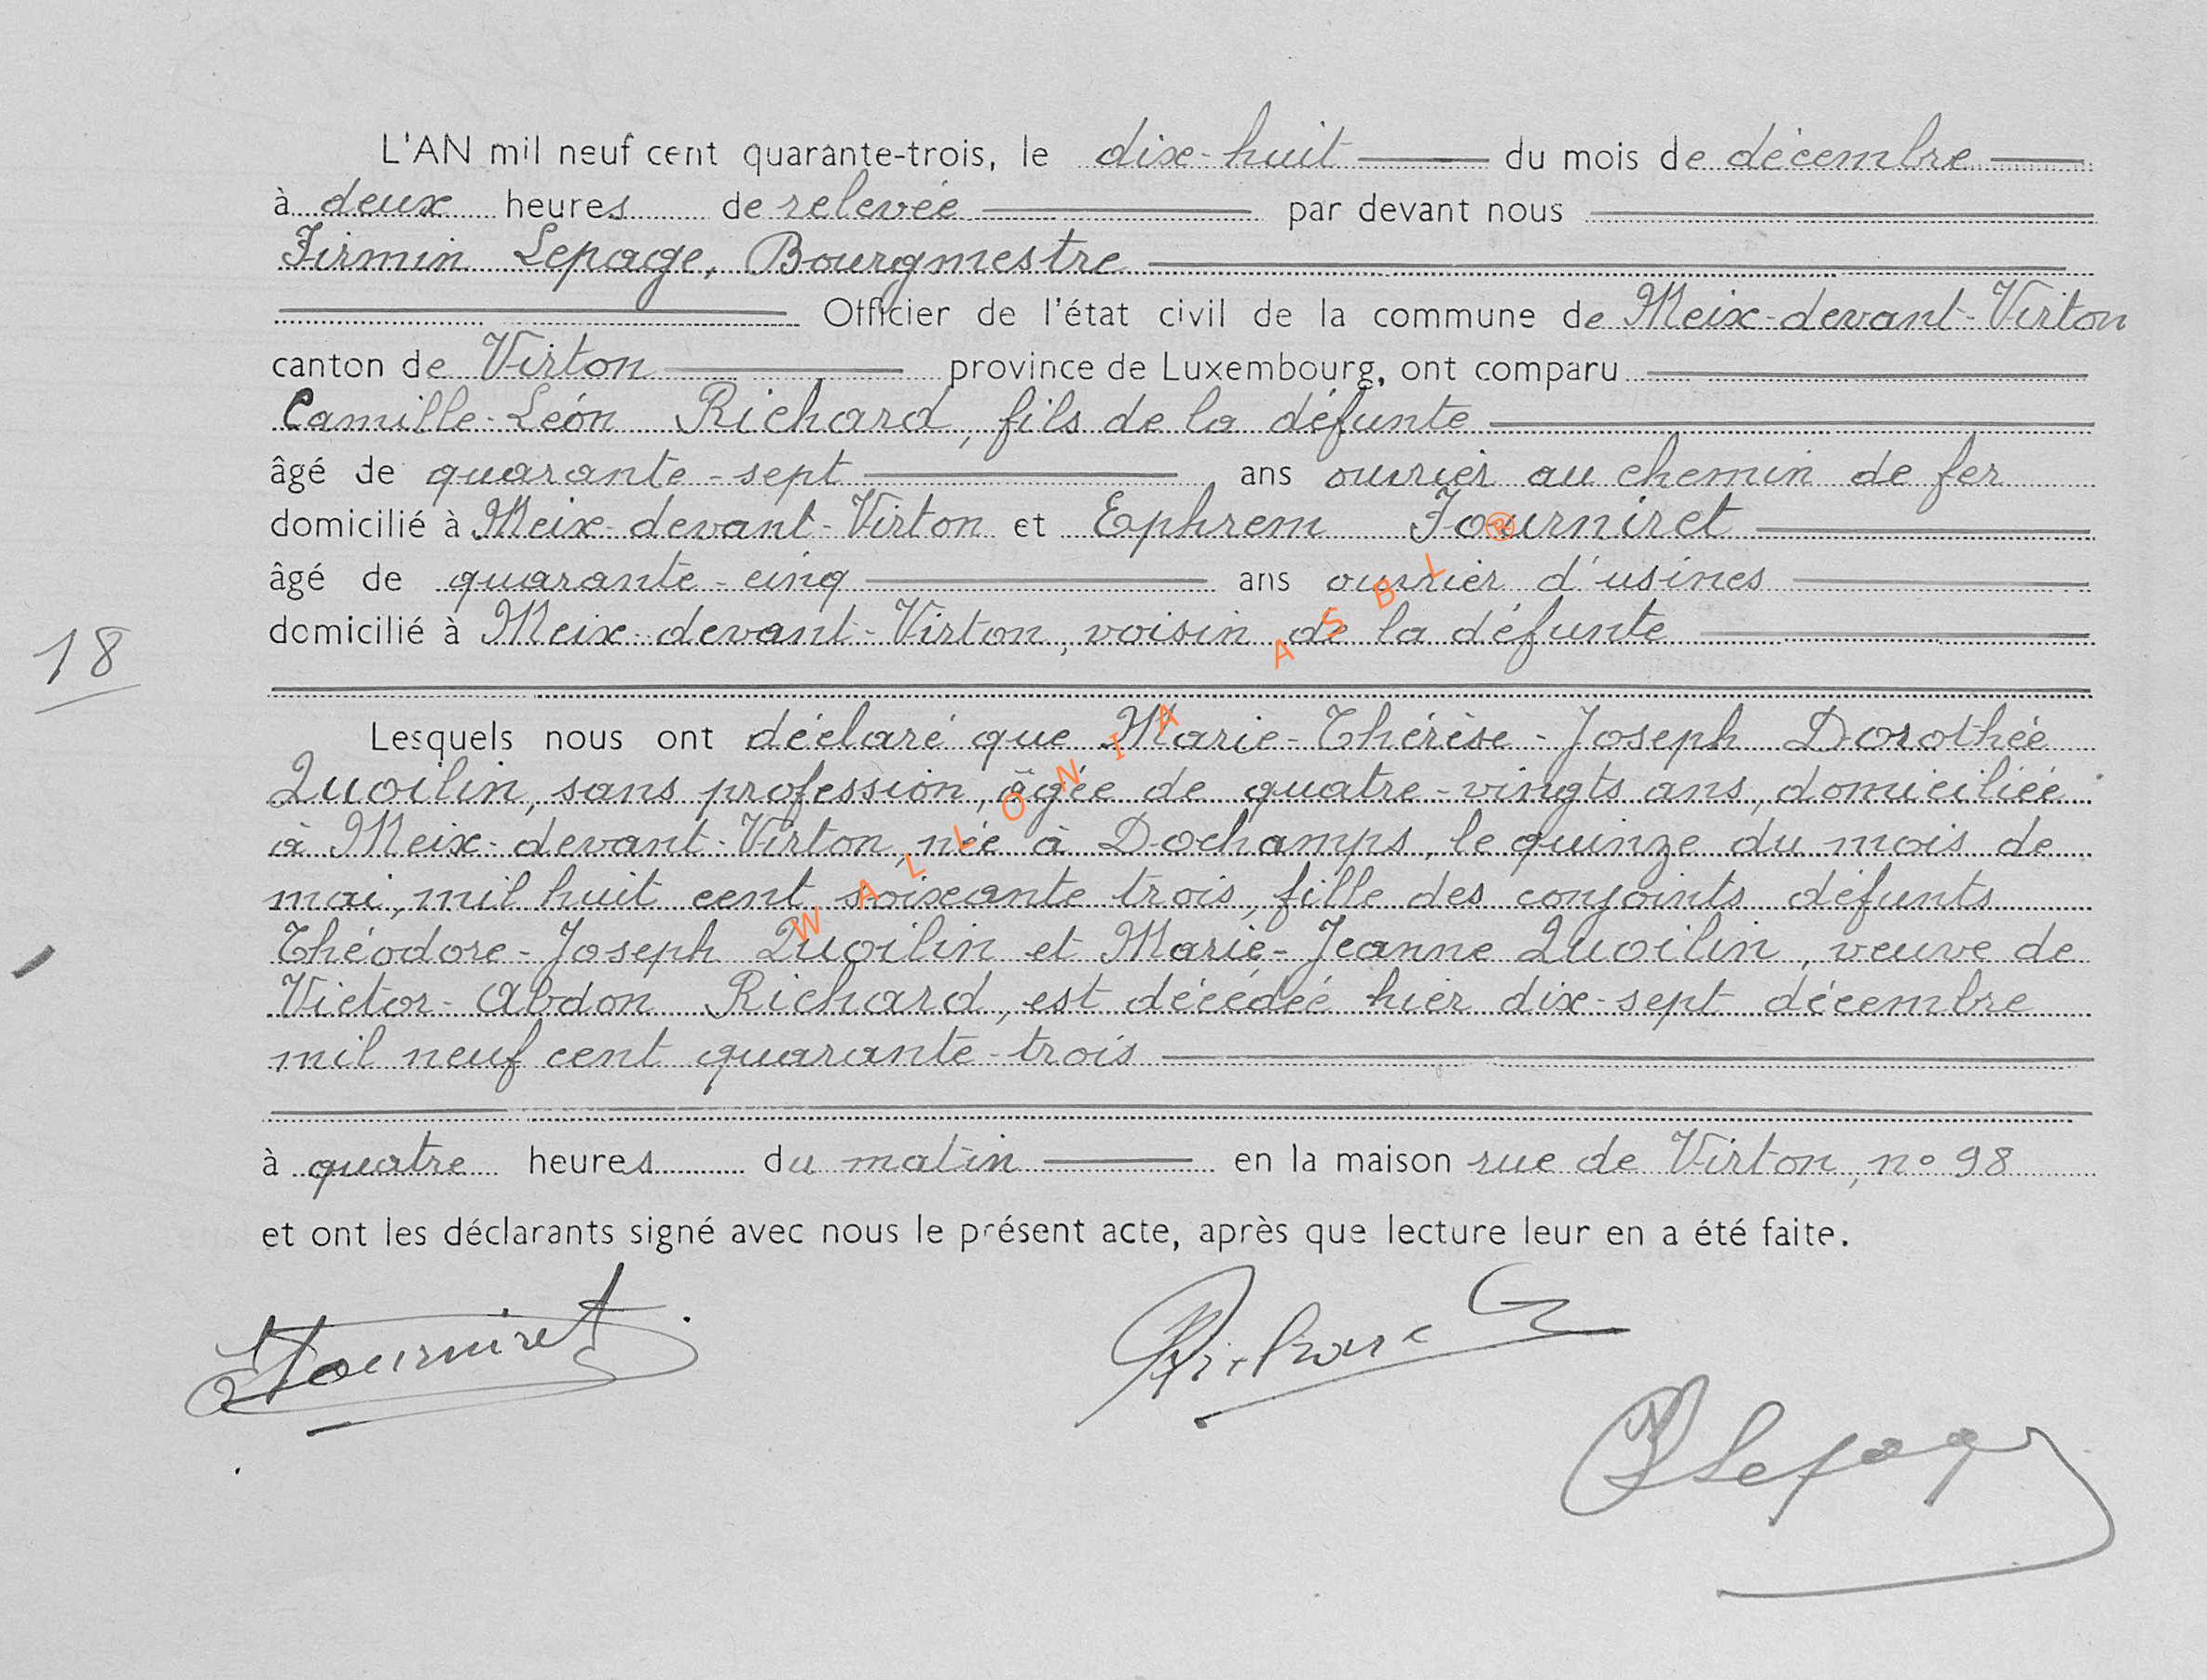 L'AN mil neuf cent quarante-trois, le dix-huit du mois de décembre
à deux heures de relevée par devant nous
Firmin Lepage, Bourgmestre
Officier de l'état civil de la commune de Meix-devant-Virton
canton de Virton province de Luxembourg, ont comparu
Camille-Léon Richard, fils de la défunte
âgé de quarante-sept ans ouvrier au chemin de fer
domicilié à Meix-devant-Virton et Ephrem Fourniret
âgé de quarante-cinq ans ouvrier d'usines
domicilié à Meix-devant-Virton, voisin de la défunte
18
Lesquels nous ont déclaré que Marie-Thérèse-Joseph Dorothée
Quoilin, sans profession, âgée de quatre-vingts ans, domiciliée
à Meix-devant-Virton, née à Dochamps, le quinze du mois de
mai, mil huit cent soixante trois, fille des conjoints défunts
Théodore-Joseph Quoilin et Marie-Jeanne Quoilin, veuve de
Victor-Abdon Richard, est décédée hier dix-sept décembre
mil neuf cent quarante-trois
à quatre heures du matin en la maison rue de Virton, n° 98
et ont les déclarants signé avec nous le présent acte, après que lecture leur en a été faite.
Fourniret
Richard C
F Lepage
WALLONIA ASBL ®